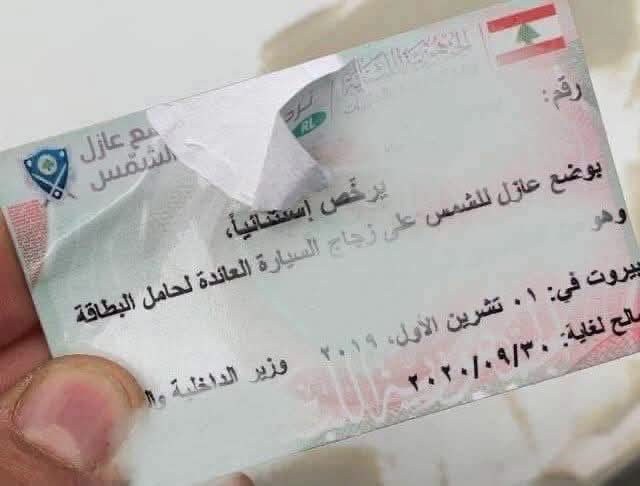 الجمهورية اللبنانية
RL
ـع عازل
الشمس
رقم:
يرخّص إستثنائياً،
بوضع عازل للشمس على زجاج السيارة العائدة لحامل البطاقة
وهو
بيروت في: ٠١ تشرين الأول، ٢٠١٩
ـالح لغاية: ٢٠٢٠/٠٩/٣٠
وزير الداخلية والـ